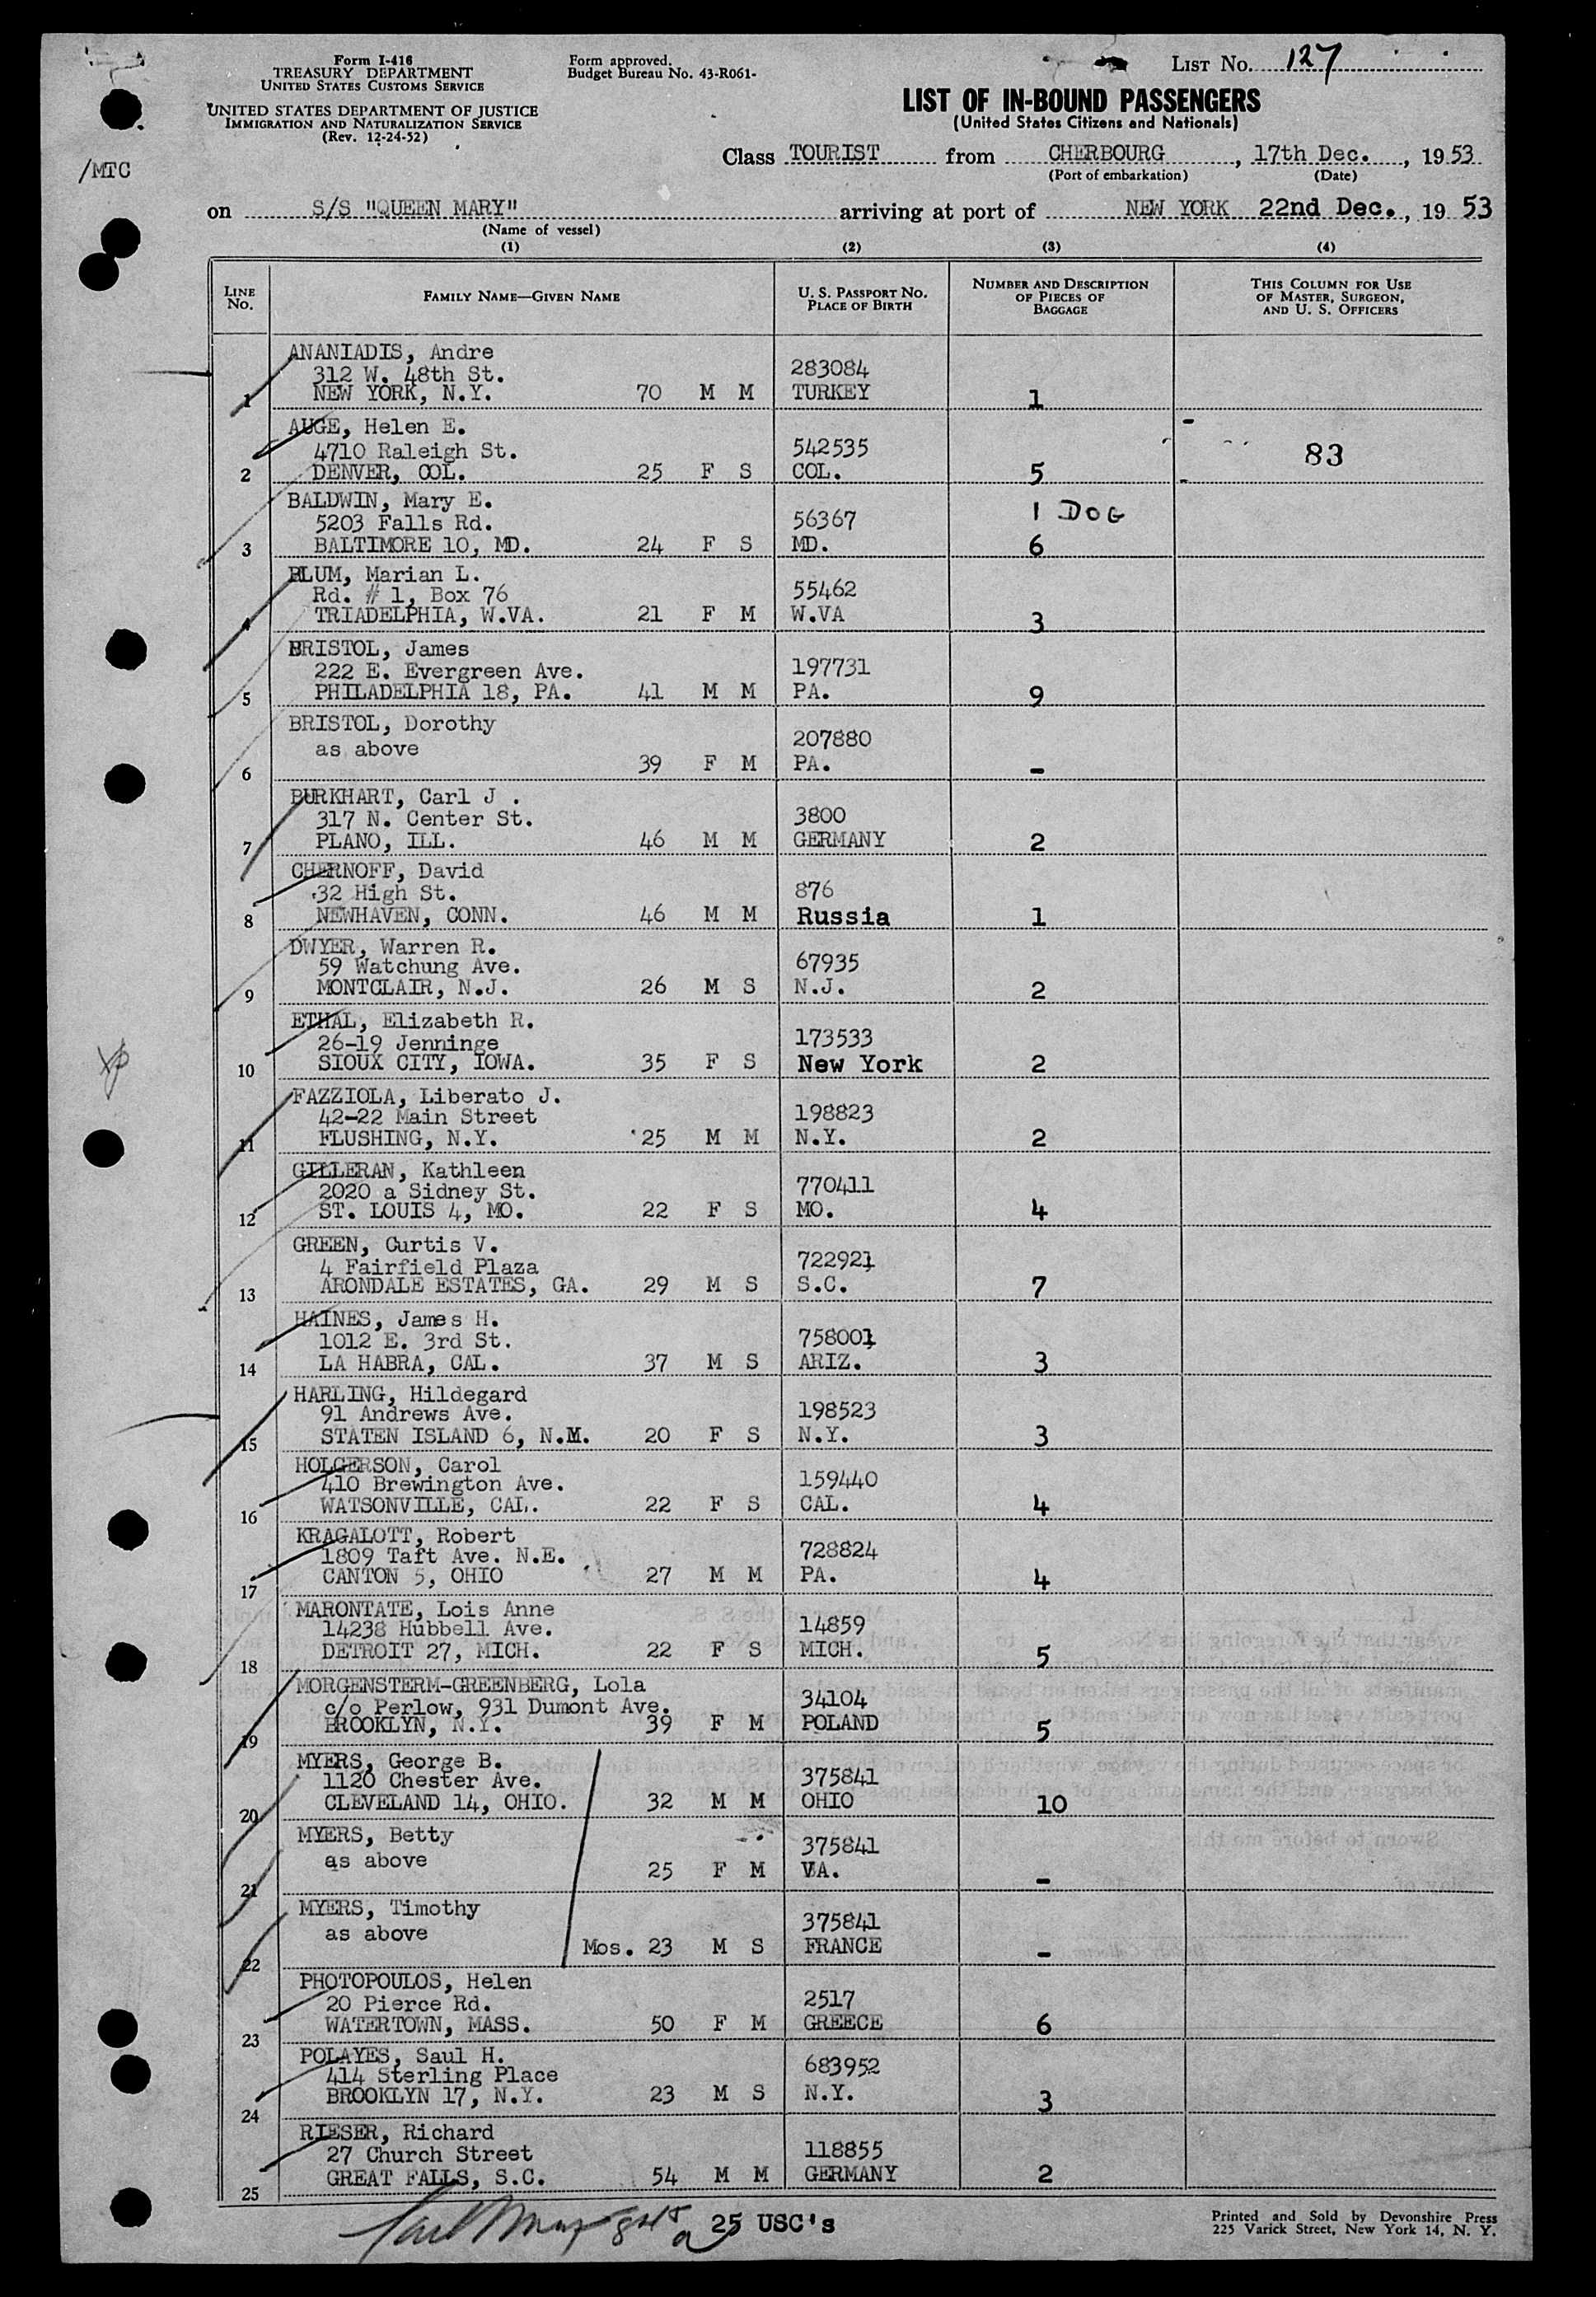 Form I-416
TREASURY DEPARTMENT
UNITED STATES CUSTOMS SERVICE
UNITED STATES DEPARTMENT OF JUSTICE
IMMIGRATION AND NATURALIZATION SERVICE
(Rev. 12-24-52)
Form approved.
Budget Bureau No. 43-R061-
LIST No. 127
LIST OF IN-BOUND PASSENGERS
(United States Citizens and Nationals)
/MTC
Class TOURIST from CHERBOURG, 17th Dec., 1953
(Port of embarkation) (Date)
on S/S "QUEEN MARY" arriving at port of NEW YORK 22nd Dec., 1953
(Name of vessel)
(1) (2) (3) (4)
LINE No. FAMILY NAME—GIVEN NAME U. S. PASSPORT NO. PLACE OF BIRTH NUMBER AND DESCRIPTION OF PIECES OF BAGGAGE THIS COLUMN FOR USE OF MASTER, SURGEON, AND U. S. OFFICERS
ANANIADIS, Andre
312 W. 48th St. 283084
1 NEW YORK, N.Y. 70 M M TURKEY 1
AUGE, Helen E.
4710 Raleigh St. 542535 83
2 DENVER, COL. 25 F S COL. 5
BALDWIN, Mary E.
5203 Falls Rd. 56367 1 DOG
3 BALTIMORE 10, MD. 24 F S MD. 6
BLUM, Marian L.
Rd. # 1, Box 76 55462
4 TRIADELPHIA, W.VA. 21 F M W.VA 3
BRISTOL, James
222 E. Evergreen Ave. 197731
5 PHILADELPHIA 18, PA. 41 M M PA. 9
BRISTOL, Dorothy
as above 207880
6 39 F M PA. -
BURKHART, Carl J .
317 N. Center St. 3800
7 PLANO, ILL. 46 M M GERMANY 2
CHERNOFF, David
32 High St. 876
8 NEWHAVEN, CONN. 46 M M Russia 1
DWYER, Warren R.
59 Watchung Ave. 67935
9 MONTCLAIR, N.J. 26 M S N.J. 2
ETHAL, Elizabeth R.
26-19 Jenninge 173533
10 SIOUX CITY, IOWA. 35 F S New York 2
FAZZIOLA, Liberato J.
42-22 Main Street 198823
11 FLUSHING, N.Y. 25 M M N.Y. 2
GILLERAN, Kathleen
2020 a Sidney St. 770411
12 ST. LOUIS 4, MO. 22 F S MO. 4
GREEN, Curtis V.
4 Fairfield Plaza 722921
13 ARONDALE ESTATES, GA. 29 M S S.C. 7
HAINES, James H.
1012 E. 3rd St. 758001
14 LA HABRA, CAL. 37 M S ARIZ. 3
HARLING, Hildegard
91 Andrews Ave. 198523
15 STATEN ISLAND 6, N.M. 20 F S N.Y. 3
HOLGERSON, Carol
410 Brewington Ave. 159440
16 WATSONVILLE, CAL. 22 F S CAL. 4
KRAGALOTT, Robert
1809 Taft Ave. N.E. 728824
17 CANTON 5, OHIO 27 M M PA. 4
MARONTATE, Lois Anne
14238 Hubbell Ave. 14859
18 DETROIT 27, MICH. 22 F S MICH. 5
MORGENSTERM-GREENBERG, Lola
c/o Perlow, 931 Dumont Ave. 34104
19 BROOKLYN, N.Y. 39 F M POLAND 5
MYERS, George B.
1120 Chester Ave. 375841
20 CLEVELAND 14, OHIO. 32 M M OHIO 10
MYERS, Betty
as above 375841
21 25 F M VA. -
MYERS, Timothy
as above 375841
22 Mos. 23 M S FRANCE -
PHOTOPOULOS, Helen
20 Pierce Rd. 2517
23 WATERTOWN, MASS. 50 F M GREECE 6
POLAYES, Saul H.
414 Sterling Place 683952
24 BROOKLYN 17, N.Y. 23 M S N.Y. 3
RIESER, Richard
27 Church Street 118855
25 GREAT FALLS, S.C. 54 M M GERMANY 2
25 USC's
Printed and Sold by Devonshire Press
225 Varick Street, New York 14, N. Y.